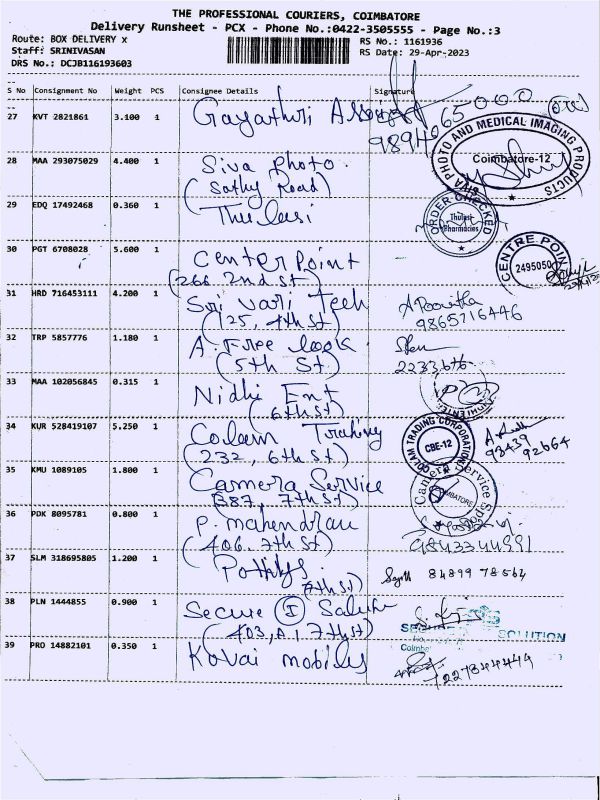 THE PROFESSIONAL COURIERS, COIMBATORE
Delivery Runsheet - PCX - Phone No.:0422-3505555 - Page No.:3
Route: BOX DELIVERY x
RS No.: 1161936
Staff: SRINIVASAN
RS Date: 29-Apr-2023
DRS No.: DCJB116193603
S No Consignment No Weight PCS Consignee Details Signature
27 KVT 2821861 3.100 1 Gayathri
28 MAA 293075029 4.400 1 Siva Photo
(Sathy Road)
SIVA PHOTO AND MEDICAL IMAGING PRODUCTS
Coimbatore-12
29 EDQ 17492468 0.360 1 Thulasi
ORDER CHECKED
Thulasi
Pharmacies
30 PGT 6708028 5.600 1 Center Point
(266 2nd St)
CENTRE POINT
2495050
31 HRD 716453111 4.200 1 Sri Vari Tech
(125, 4th St)
9865716446
32 TRP 5857776 1.180 1 A. Free look
(5th St)
33 MAA 102056845 0.315 1 Nidhi Ent
(6th St)
34 KUR 528419107 5.250 1 Colam Trading
(232, 6th St)
COLAM TRADING CORPORATION
CBE-12
93439
92664
35 KMU 1089105 1.800 1 Camera Service
387, 7th St)
Camera Service
COIMBATORE
36 PDK 8095781 0.800 1 P. Mahendran
(406. 7th St)
9843344991
37 SLM 318695805 1.200 1 Pothys
7th St)
84899 78564
38 PLN 1444855 0.900 1 Secure I
(403, A.1. 7th St)
SOLUTION
39 PRO 14882101 0.350 1 Kovai mobiles